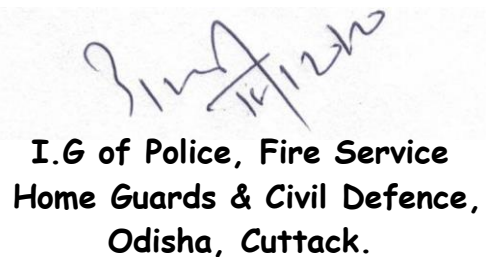 I.G of Police, Fire Service
Home Guards & Civil Defence,
Odisha, Cuttack.